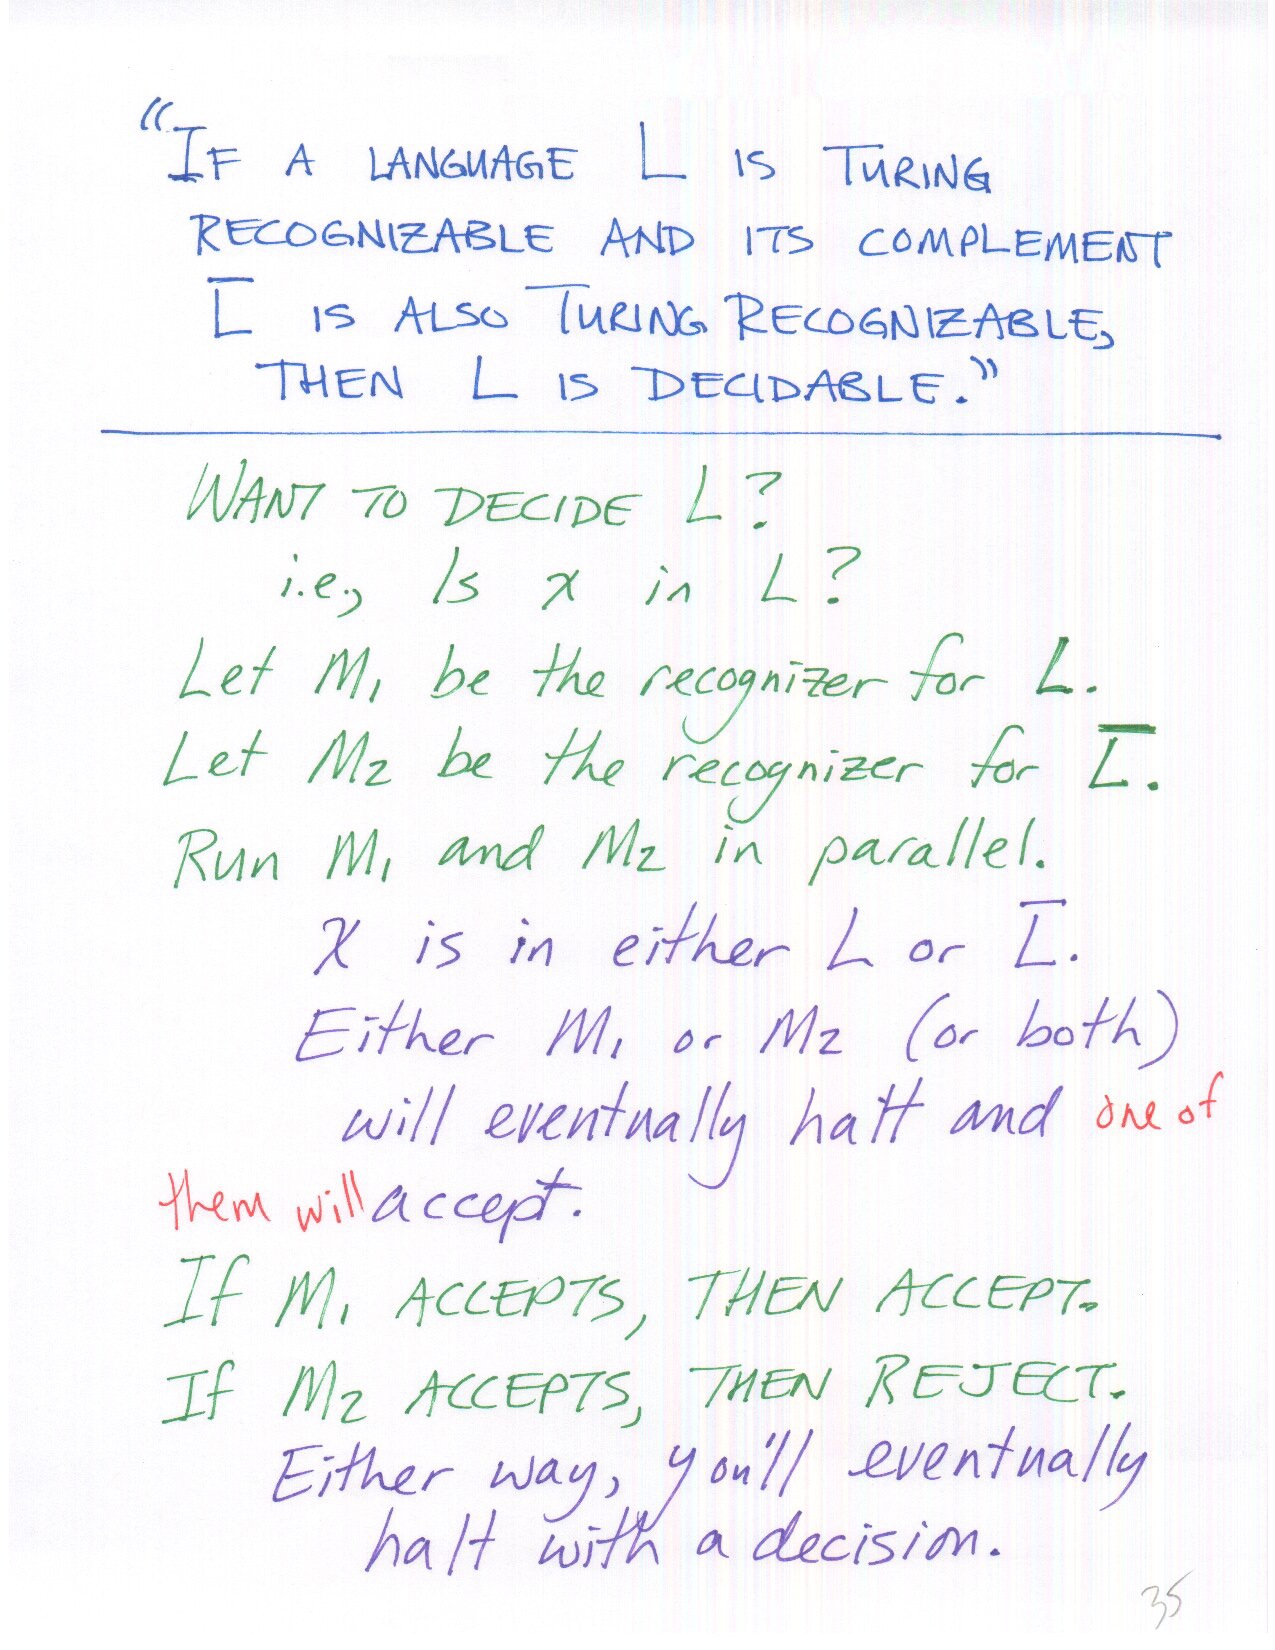 "IF A LANGUAGE L IS TURING
RECOGNIZABLE AND ITS COMPLEMENT
L̅ IS ALSO TURING RECOGNIZABLE,
THEN L IS DECIDABLE."
WANT TO DECIDE L?
i.e., Is x in L?
Let M₁ be the recognizer for L.
Let M₂ be the recognizer for L̅.
Run M₁ and M₂ in parallel.
X is in either L or L̅.
Either M₁ or M₂ (or both)
will eventually halt and one of
them will accept.
If M₁ ACCEPTS, THEN ACCEPT.
If M₂ ACCEPTS, THEN REJECT.
Either way, you'll eventually
halt with a decision.
35